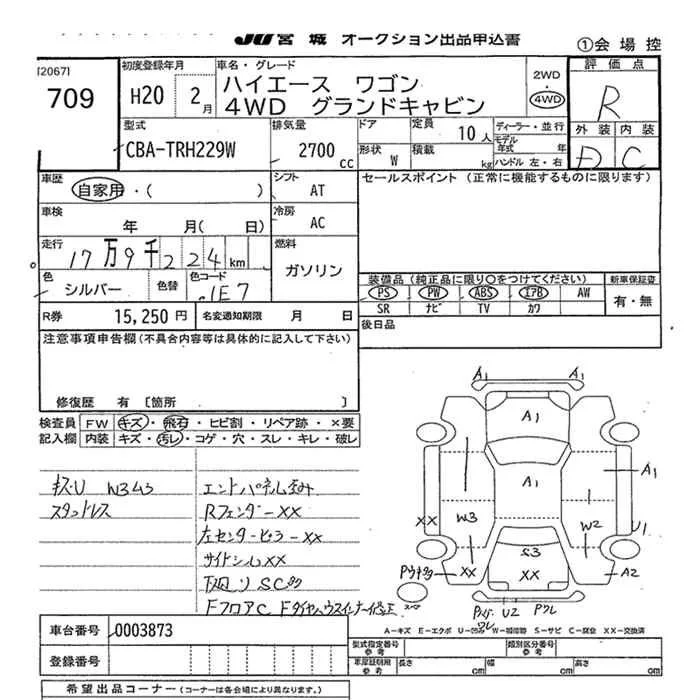 JU 宮城 オークション出品申込書
①会場控
[2067]
709
初度登録年月
H20 2月
車名・グレード
ハイエース ワゴン
4WD グランドキャビン
2WD
4WD
評価点
R
外装 内装
D C
型式
CBA-TRH229W
排気量
2700cc
ドア
形状 W
定員 10人
積載 kg
ディーラー・並行
モデル年式 年
ハンドル 左・右
車歴
自家用・( )
シフト AT
セールスポイント (正常に機能するものに限ります)
車検 年 月( 日)
冷房 AC
走行 17万9千224km
燃料
ガソリン
色 シルバー
色替
色コード 1E7
装備品 (純正品に限り○をつけてください)
新車保証書
PS PW ABS エアB AW
SR ナビ TV カワ
有・無
R券 15,250円
名変通知期限 月 日
後日品
注意事項申告欄(不具合内容等は具体的に記入して下さい)
修復歴 有 [箇所 ]
検査員記入欄
FW キズ・飛石・ヒビ割・リペア跡・×要
内装 キズ・汚レ・コゲ・穴・スレ・キレ・破レ
キズ・U W3 S3
スタットレス
エンドパネル歪み
Rフェンダー XX
左センターピラー XX
サイドシル XX
下廻り SC多
FフロアC
A1 A1
A1
A1
A1
W3
W2
XX
U1
S3
XX
XX
A2
U2
ワレ
A-キズ E-エクボ U-凹み W-補修跡 S-サビ C-腐食 XX-交換済
車台番号 0003873
登録番号
型式指定番号 参考
類別区分番号 参考
車庫証明用 参考 長さ cm 幅 cm 高さ cm
希望出品コーナー (コーナーは各会場により異なります。)